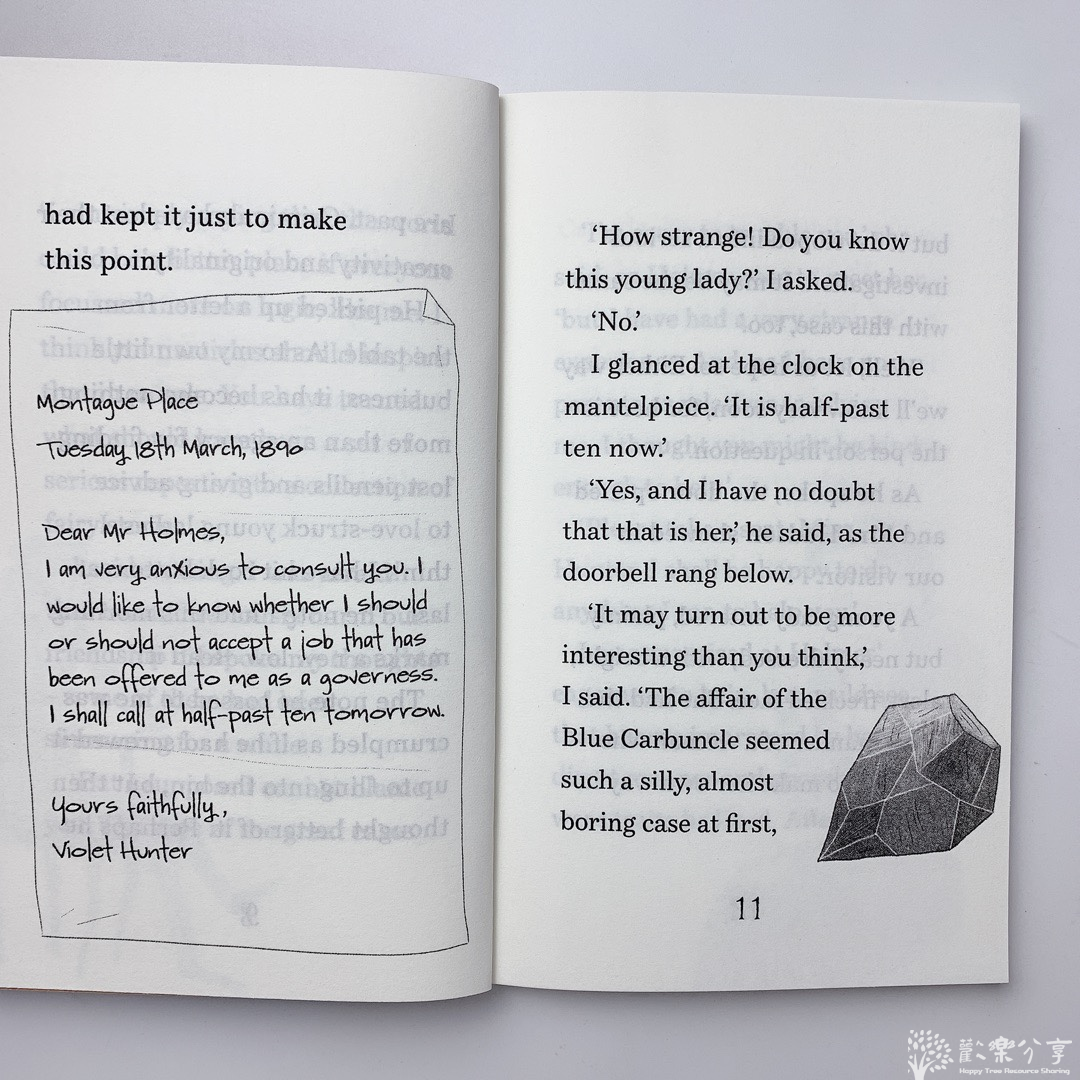 had kept it just to make
this point.
Montague Place
Tuesday 18th March, 1890
Dear Mr Holmes,
I am very anxious to consult you. I
would like to know whether I should
or should not accept a job that has
been offered to me as a governess.
I shall call at half-past ten tomorrow.
Yours faithfully,
Violet Hunter
‘How strange! Do you know
this young lady?’ I asked.
‘No.’
I glanced at the clock on the
mantelpiece. ‘It is half-past
ten now.’
‘Yes, and I have no doubt
that that is her,’ he said, as the
doorbell rang below.
‘It may turn out to be more
interesting than you think,’
I said. ‘The affair of the
Blue Carbuncle seemed
such a silly, almost
boring case at first,
11
歡樂分享
Happy Tree Resource Sharing